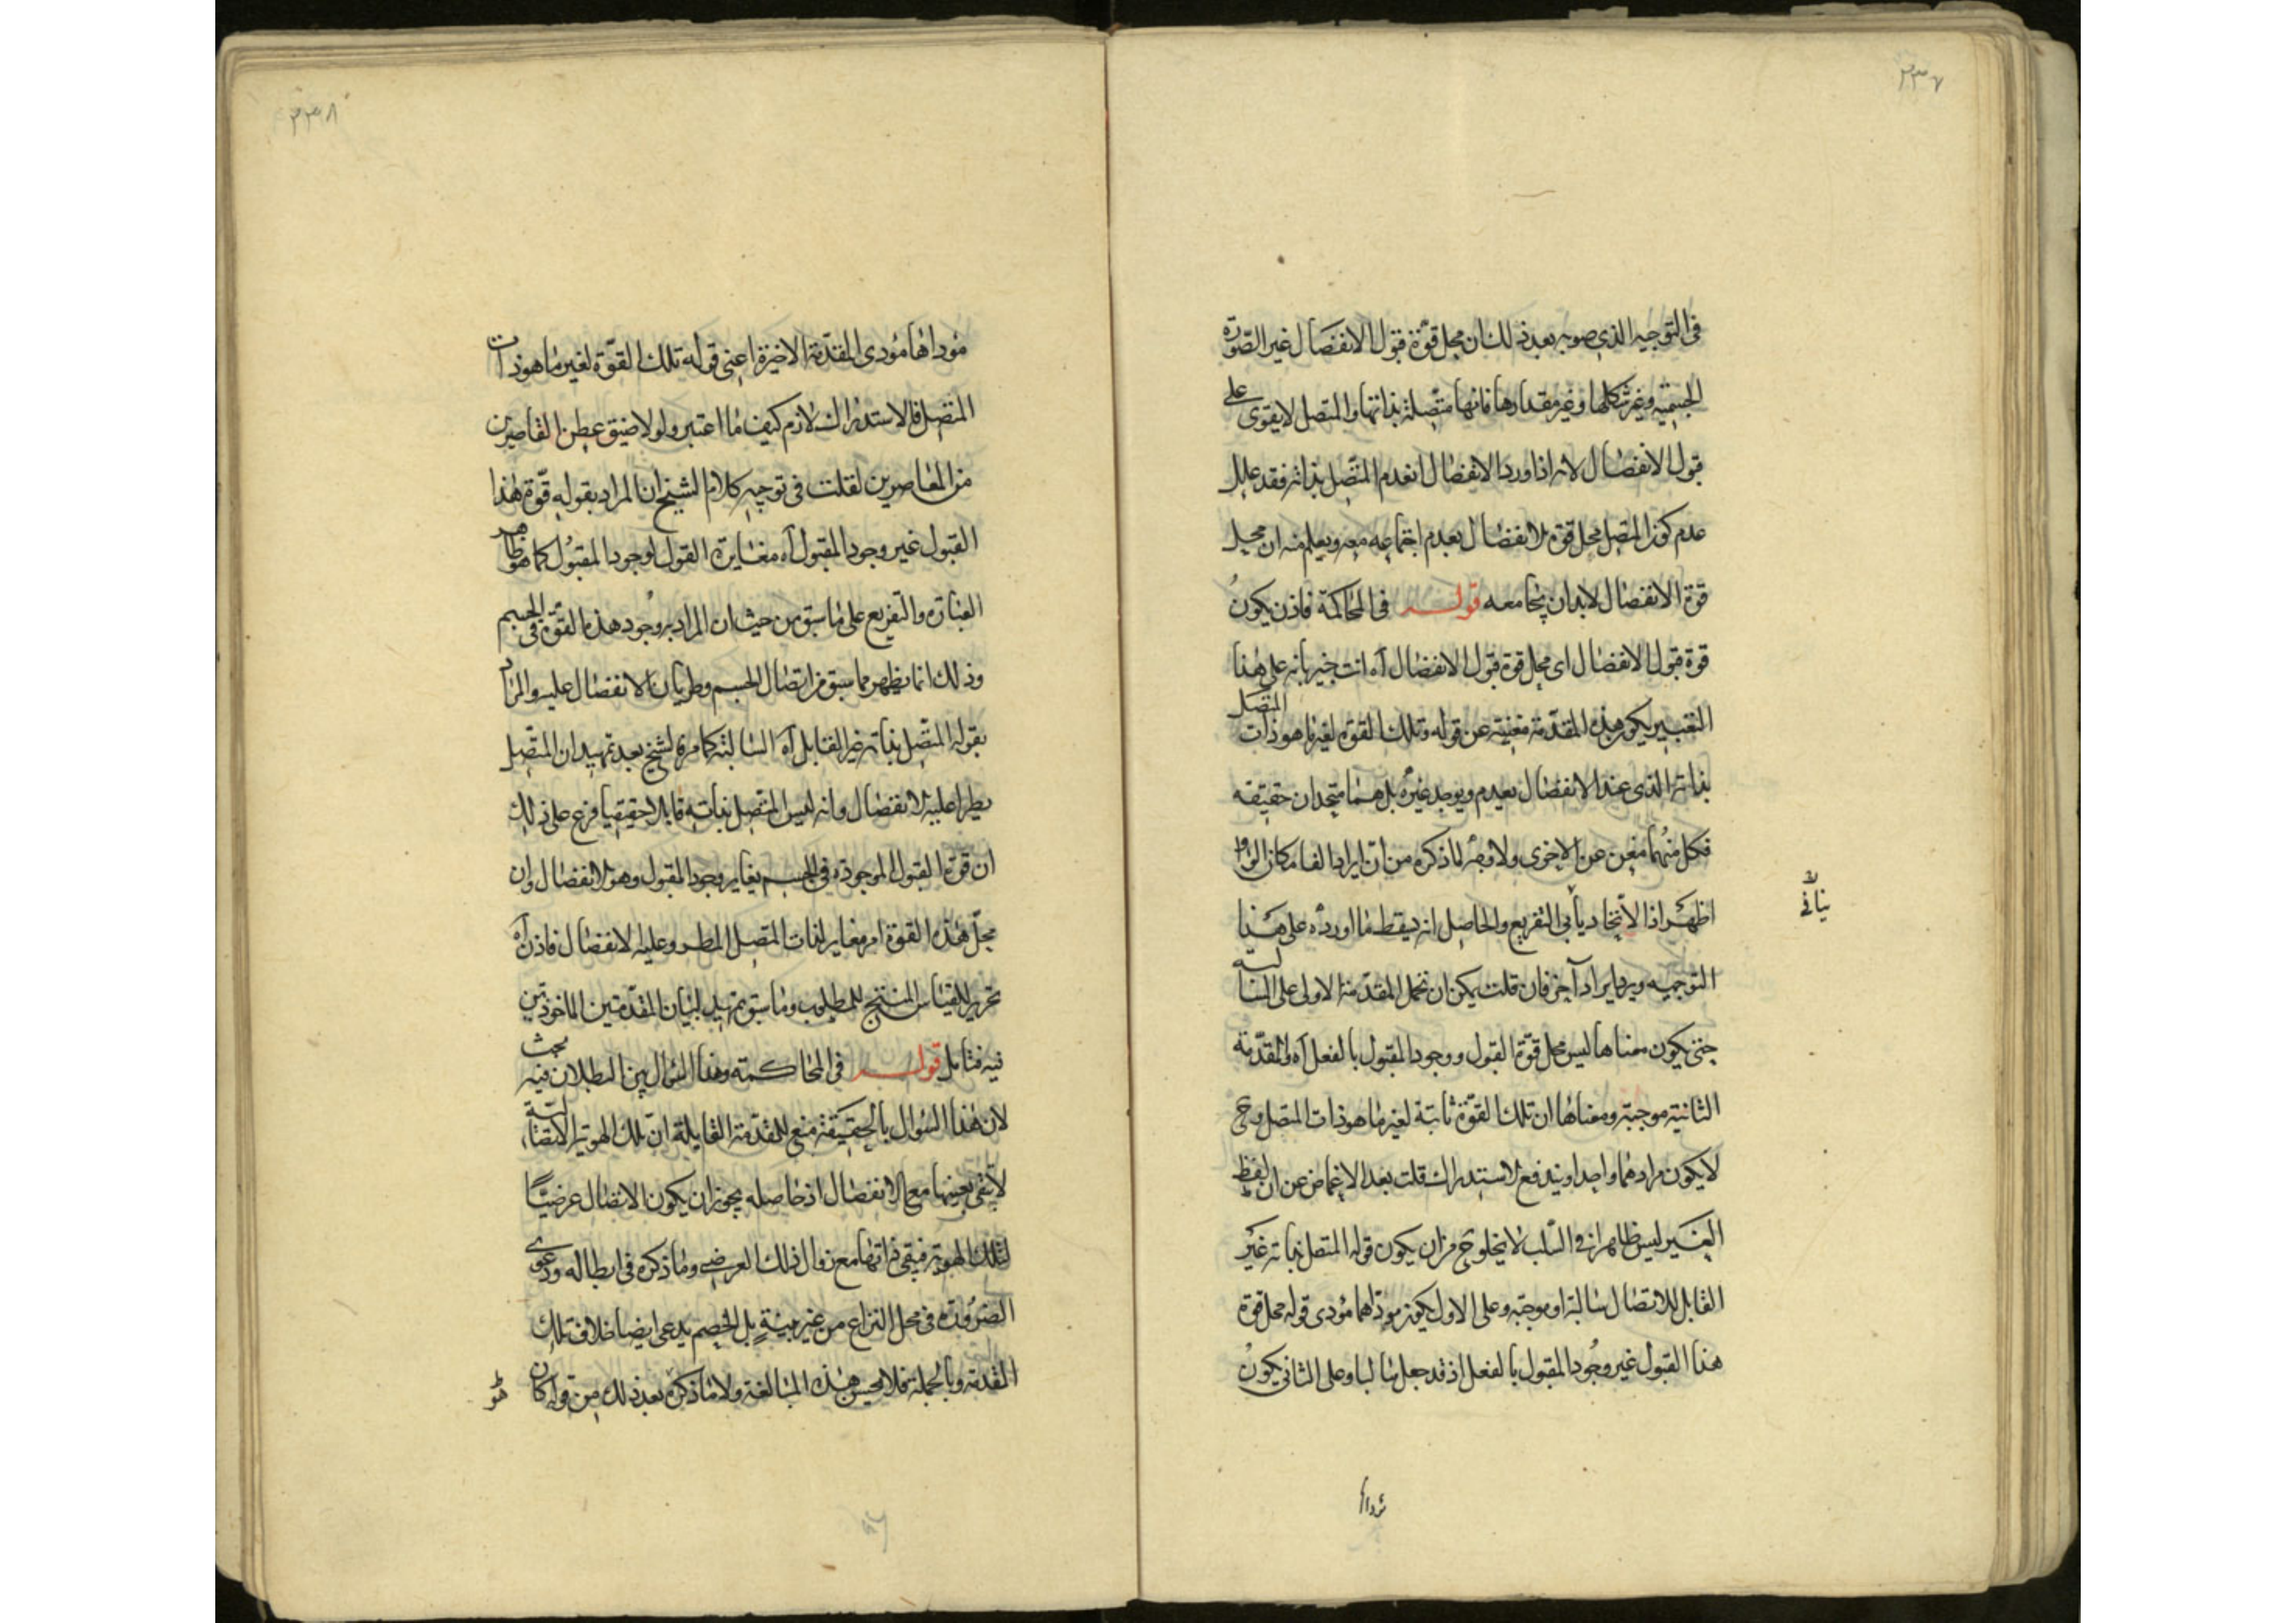 ٢٣٧
فى التوجيه الذى صوبه بعد ذلك ان محل قوة قبول الانفصال غير الصورة
الجسمية وغير شكلها وغير مقدارها فانها متصلة بذاتها والمتصل لا يقوى على
قبول الانفصال لانه اذا ورد الانفصال انعدم المتصل بذاته فقد علل
عدم كون المتصل محل قوة الانفصال بعدم اجتماعه معه ويعلم منه ان محل
قوة الانفصال لابد ان يجامعه قوله فى المحاكمة فاذن يكون
قوة قبول الانفصال اى محل قوة قبول الانفصال آه انت خبير بانه على هذا
التعبير يكون هذه المقدمة مغنية عن قوله وتلك القوة لغير ما هو ذات المتصل
بذاته الذى عند الانفصال يعدم ويوجد غيره بل هما متحدان حقيقة
فكل منهما مغن عن الاخرى ولا وجه لما ذكره من ان ايراد الفا مكان الواو
اظهر اذ الاتحاد يأبى التفريع والحاصل انه يسقط ما اورده على هذا
ينافى
التوجيه ويرد ايراد آخر فان قلت يمكن ان نحمل المقدمة الاولى على السالبة
حتى يكون معناها ليس محل قوة القبول ووجود المقبول بالفعل آه والمقدمة
الثانية موجبة ومعناها ان تلك القوة ثابتة لغير ما هو ذات المتصل وح
لا يكون مرادهما واحدا ويندفع الاستدراك قلت بعد الاغماض عن ان لفظ
الغير ليس ظاهرا فى السلب لا يخلو ح من ان يكون قوله المتصل بذاته غير
القابل للاتصال سالبة او موجبة وعلى الاول يكون مودّاهما مؤدى قوله محل قوة
هذا القبول غير وجود المقبول بالفعل اذ قد جعل سالبا وعلى الثانى يكون
مؤداها
٢٣٨
مؤداها مؤدى المقدمة الاخيرة اعنى قوله تلك القوة لغير ما هو ذات
المتصل فالاستدراك لازم كيف ما اعتبر ولولا ضيق عطن القاصرين
من المعاصرين لقلت فى توجيه كلام الشيخ ان المراد بقوله قوة هذا
القبول غير وجود المقبول آه مغايرة القول لوجود المقبول كما هو ظاهر
العبارة والتفريع على ما سبق من حيث ان المراد بوجود هذه القوة فى الجسم
وذلك انما يظهر مما سبق من اتصال الجسم وطريان الانفصال عليه والمراد
بقوله المتصل بذاته غير القابل آه السالبة كما مر فالشيخ بعد تمهيد ان المتصل
يطرأ عليه الانفصال وانه ليس المتصل بذاته قابلا حقيقيا فرع على ذلك
ان قوة القبول الموجودة فى الجسم يغاير وجود المقبول وهو الانفصال وان
محل هذه القوة امر مغاير لذات المتصل المطرو عليه الانفصال فاذن آه
تحرير للقياس المنتج للمطلوب وما سبق تمهيد لبيان المقدمتين الماخوذتين
فيه فتامل قوله فى المحاكمة وهذا السؤال بين البطلان فيه بحث
لان هذا السؤال بالحقيقة منع للمقدمة القايلة ان تلك الهوية الاتصالية
لا تبقى بعينها مع الانفصال اذ حاصله يجوز ان يكون الاتصال عرضيا
لتلك الهوية فيبقى ذاتها مع زوال ذلك العرضى وما ذكره فى ابطاله ودعوى
الضرورة فى محل النزاع من غير بينة بل الخصم يدعى ايضا خلاف تلك
المقدمة وبالجملة فلا يحسن هذه المبالغة ولا ما ذكره بعد ذلك من قوله كان
هو